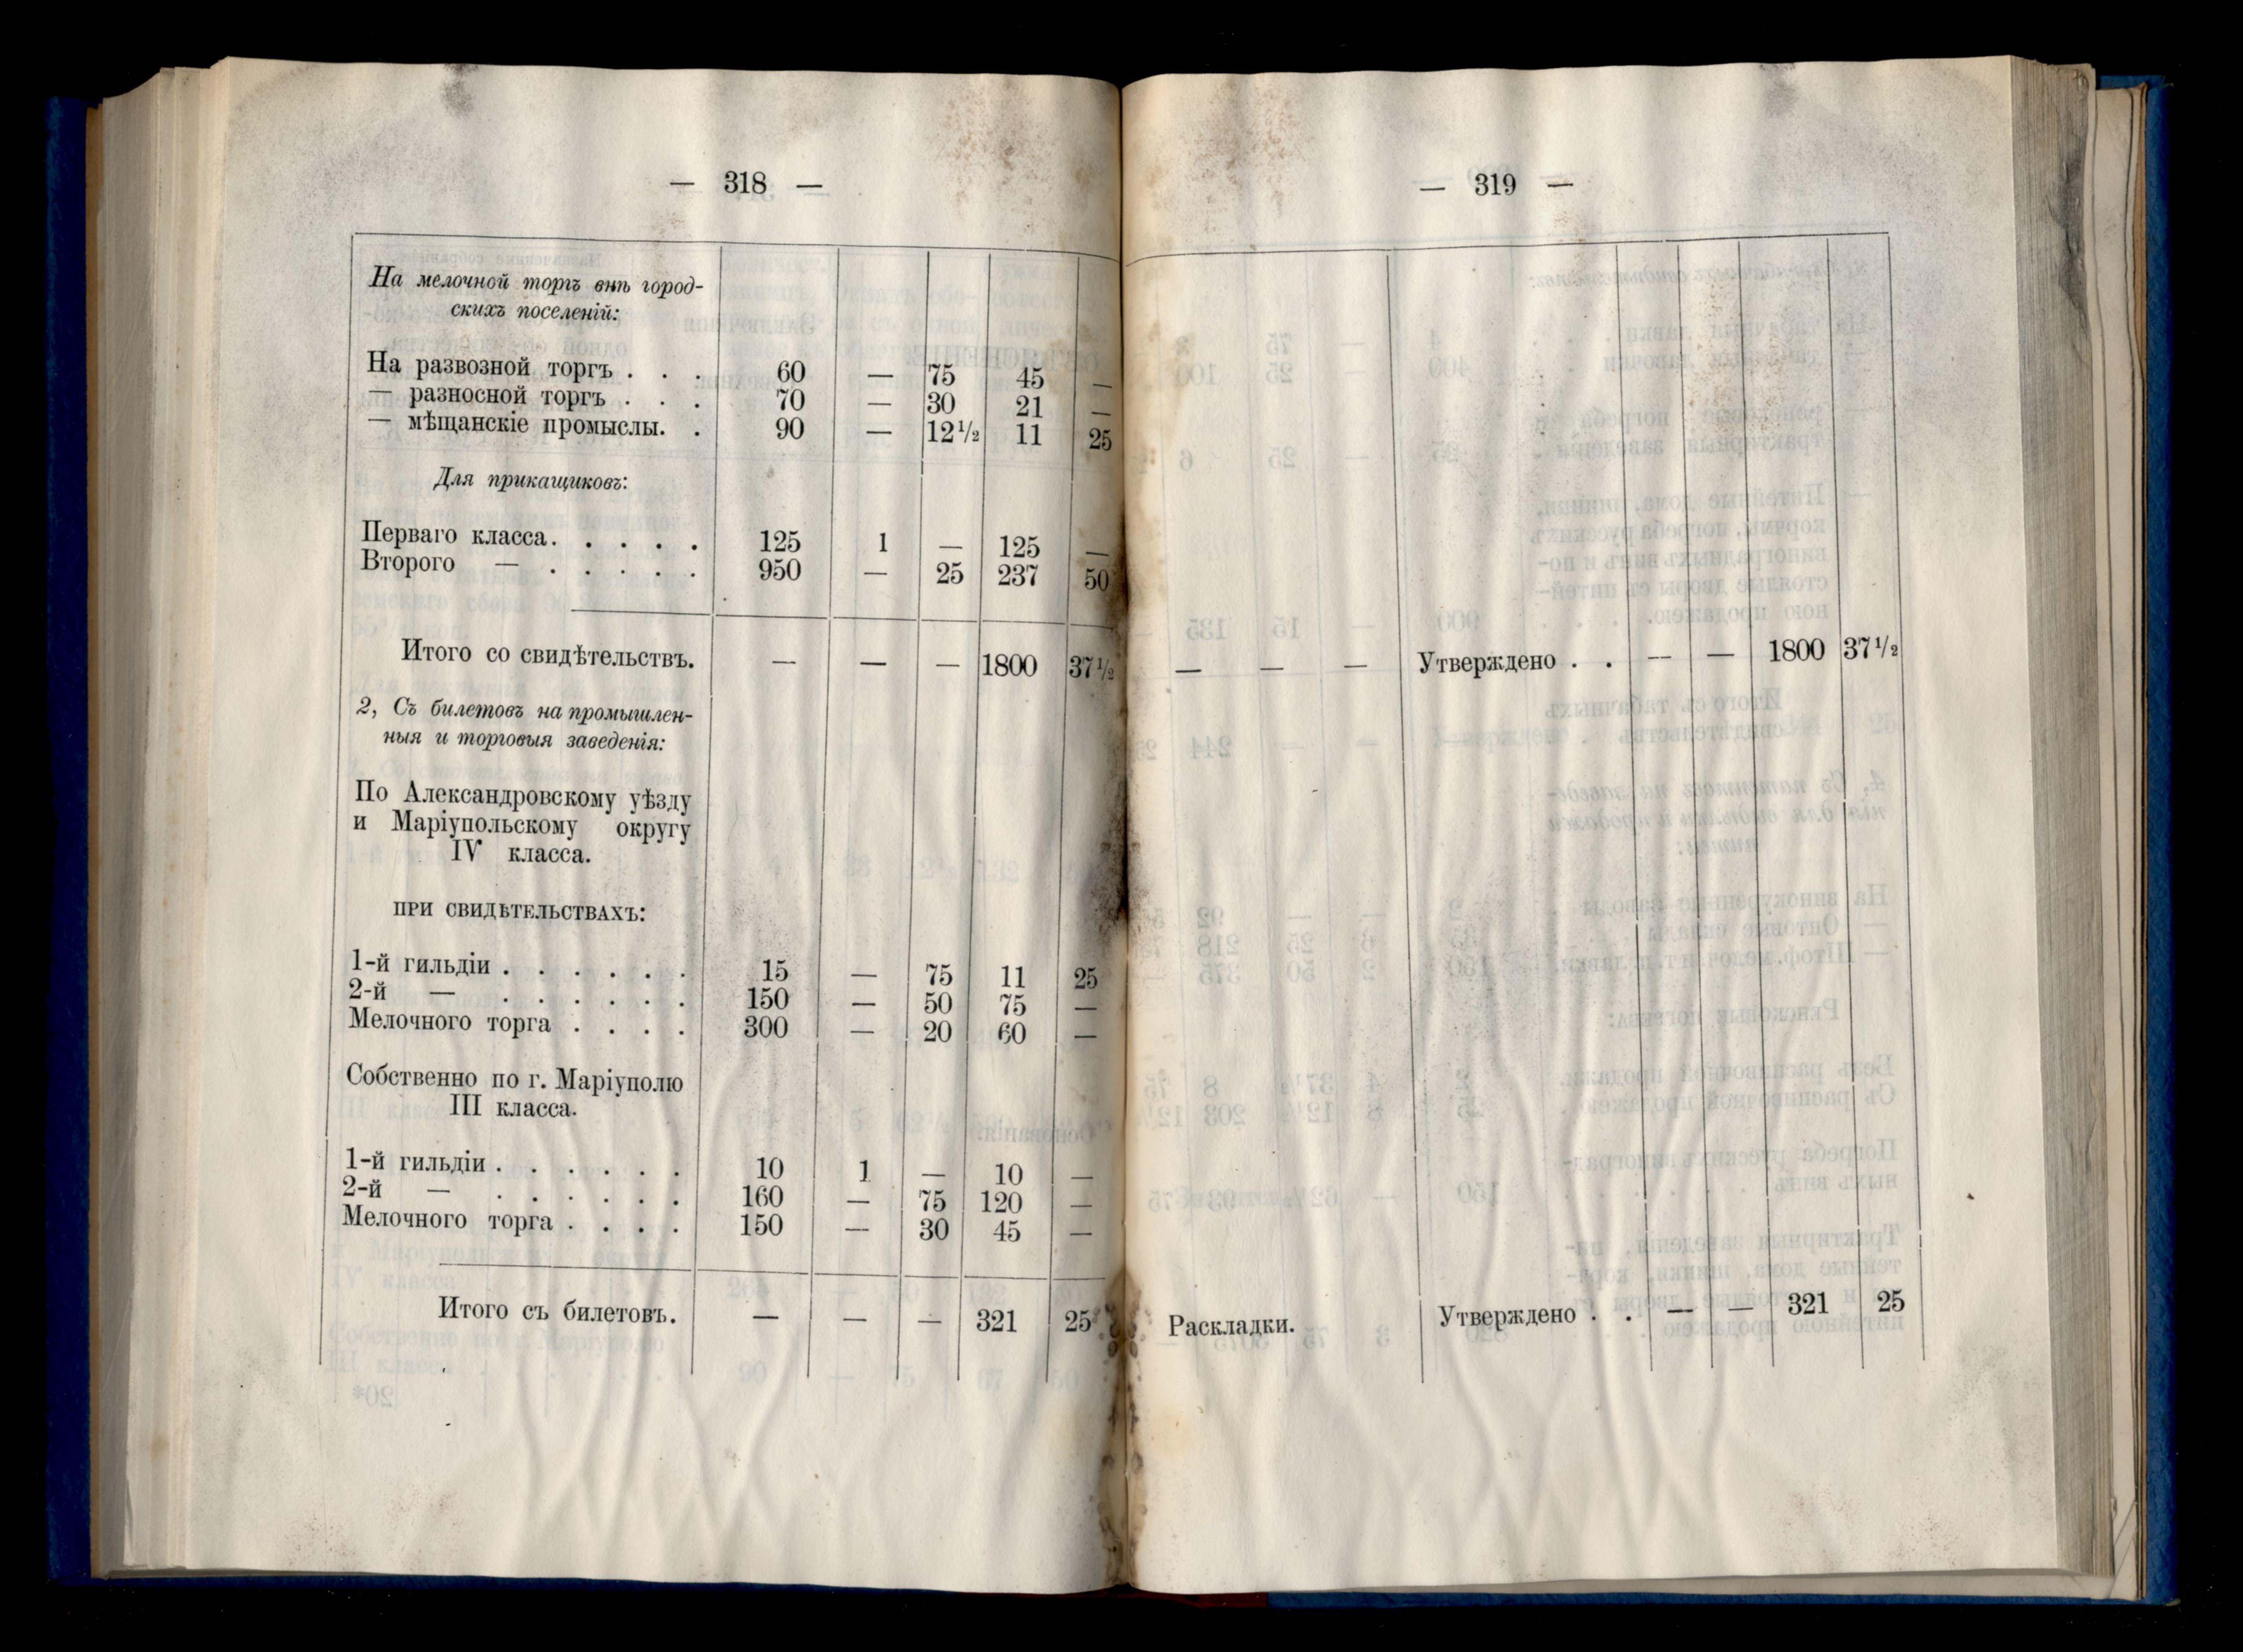 — 318 —
На мелочной торгъ внѣ город-
скихъ поселеній:
На развозной торгъ . . . 60 — 75 45 —
— разносной торгъ . . . 70 — 30 21 —
— мѣщанскіе промыслы. . 90 — 12½ 11 25
Для прикащиковъ:
Перваго класса. . . . . 125 1 — 125 —
Второго — . . . . . 950 — 25 237 50
Итого со свидѣтельствъ. — — — 1800 37½
2, Съ билетовъ на промышлен-
ныя и торговыя заведенія:
По Александровскому уѣзду
и Маріупольскому округу
IV класса.
ПРИ СВИДѢТЕЛЬСТВАХЪ:
1-й гильдіи . . . . . . 15 — 75 11 25
2-й — . . . . . . 150 — 50 75 —
Мелочного торга . . . . 300 — 20 60 —
Собственно по г. Маріуполю
III класса.
1-й гильдіи . . . . . . 10 1 — 10 —
2-й — . . . . . . 160 — 75 120 —
Мелочного торга . . . . 150 — 30 45 —
Итого съ билетовъ. — — — 321 25
— 319 —
— — — Утверждено . . — — 1800 37½
Раскладки. Утверждено . . — — 321 25